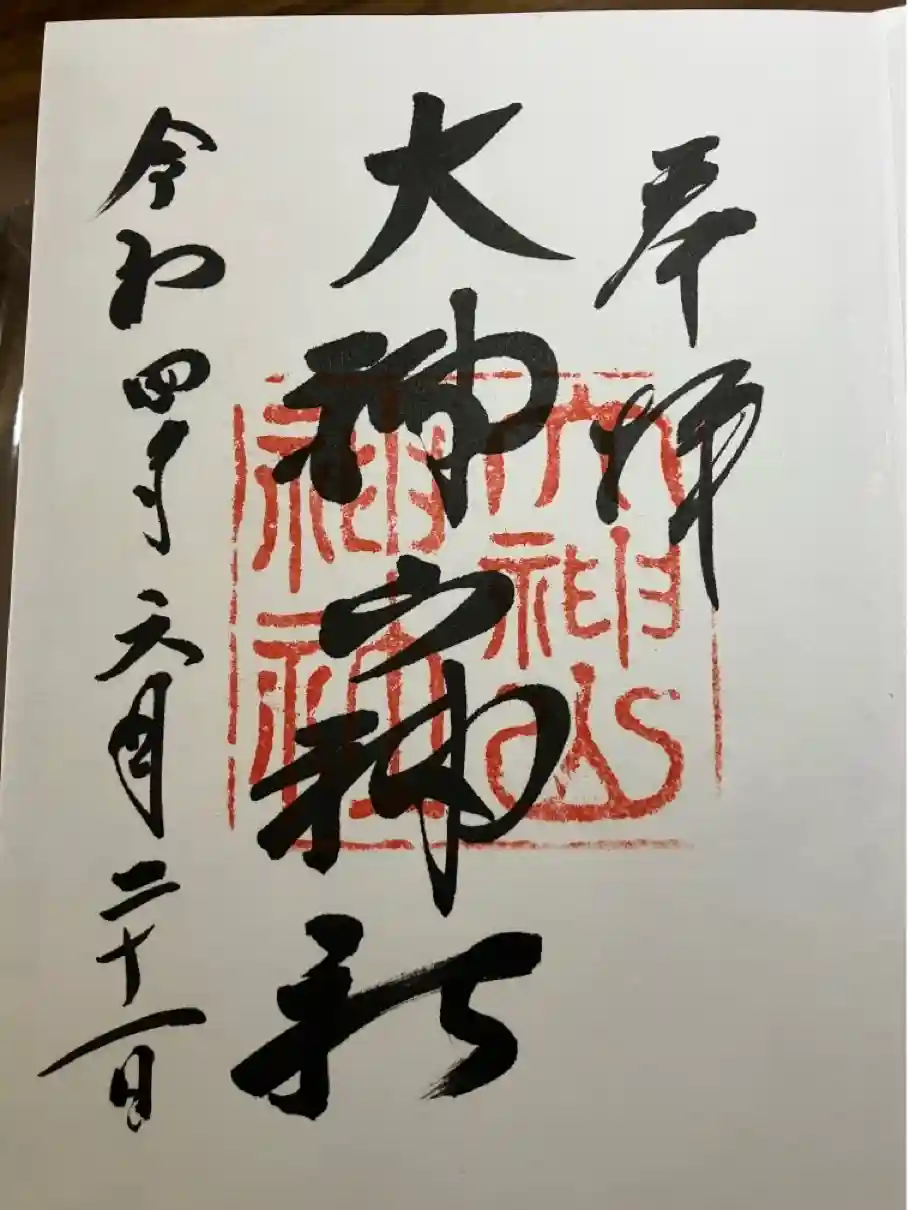 奉拝
大神山神社
大神山
神社
令和四年六月二十一日